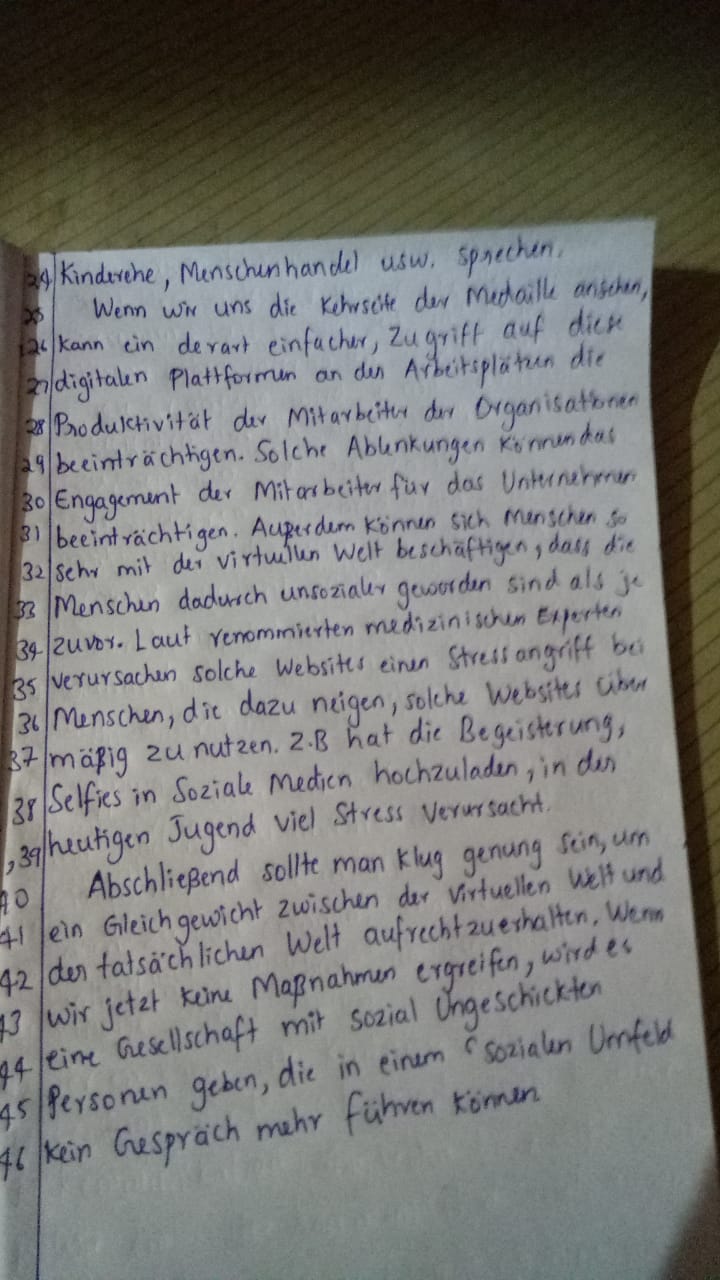 24 Kinderehe, Menschenhandel usw. sprechen.
25 Wenn wir uns die Kehrseite der Medaille ansehen,
26 kann ein derart einfacher, Zugriff auf diese
27 digitalen Plattformen an den Arbeitsplätzen die
28 Produktivität der Mitarbeiter der Organisationen
29 beeinträchtigen. Solche Ablenkungen können das
30 Engagement der Mitarbeiter für das Unternehmen
31 beeinträchtigen. Außerdem können sich Menschen so
32 sehr mit der virtuellen Welt beschäftigen, dass die
33 Menschen dadurch unsozialer geworden sind als je
34 zuvor. Laut renommierten medizinischen Experten
35 verursachen solche Websites einen Stressangriff bei
36 Menschen, die dazu neigen, solche Websites über
37 mäßig zu nutzen. Z.B hat die Begeisterung,
38 Selfies in Soziale Medien hochzuladen, in der
39 heutigen Jugend viel Stress verursacht.
40 Abschließend sollte man klug genung sein, um
41 ein Gleichgewicht zwischen der virtuellen Welt und
42 der tatsächlichen Welt aufrechtzuerhalten. Wenn
43 wir jetzt keine Maßnahmen ergreifen, wird es
44 eine Gesellschaft mit sozial Ungeschickten
45 Personen geben, die in einem sozialen Umfeld
46 kein Gespräch mehr führen können